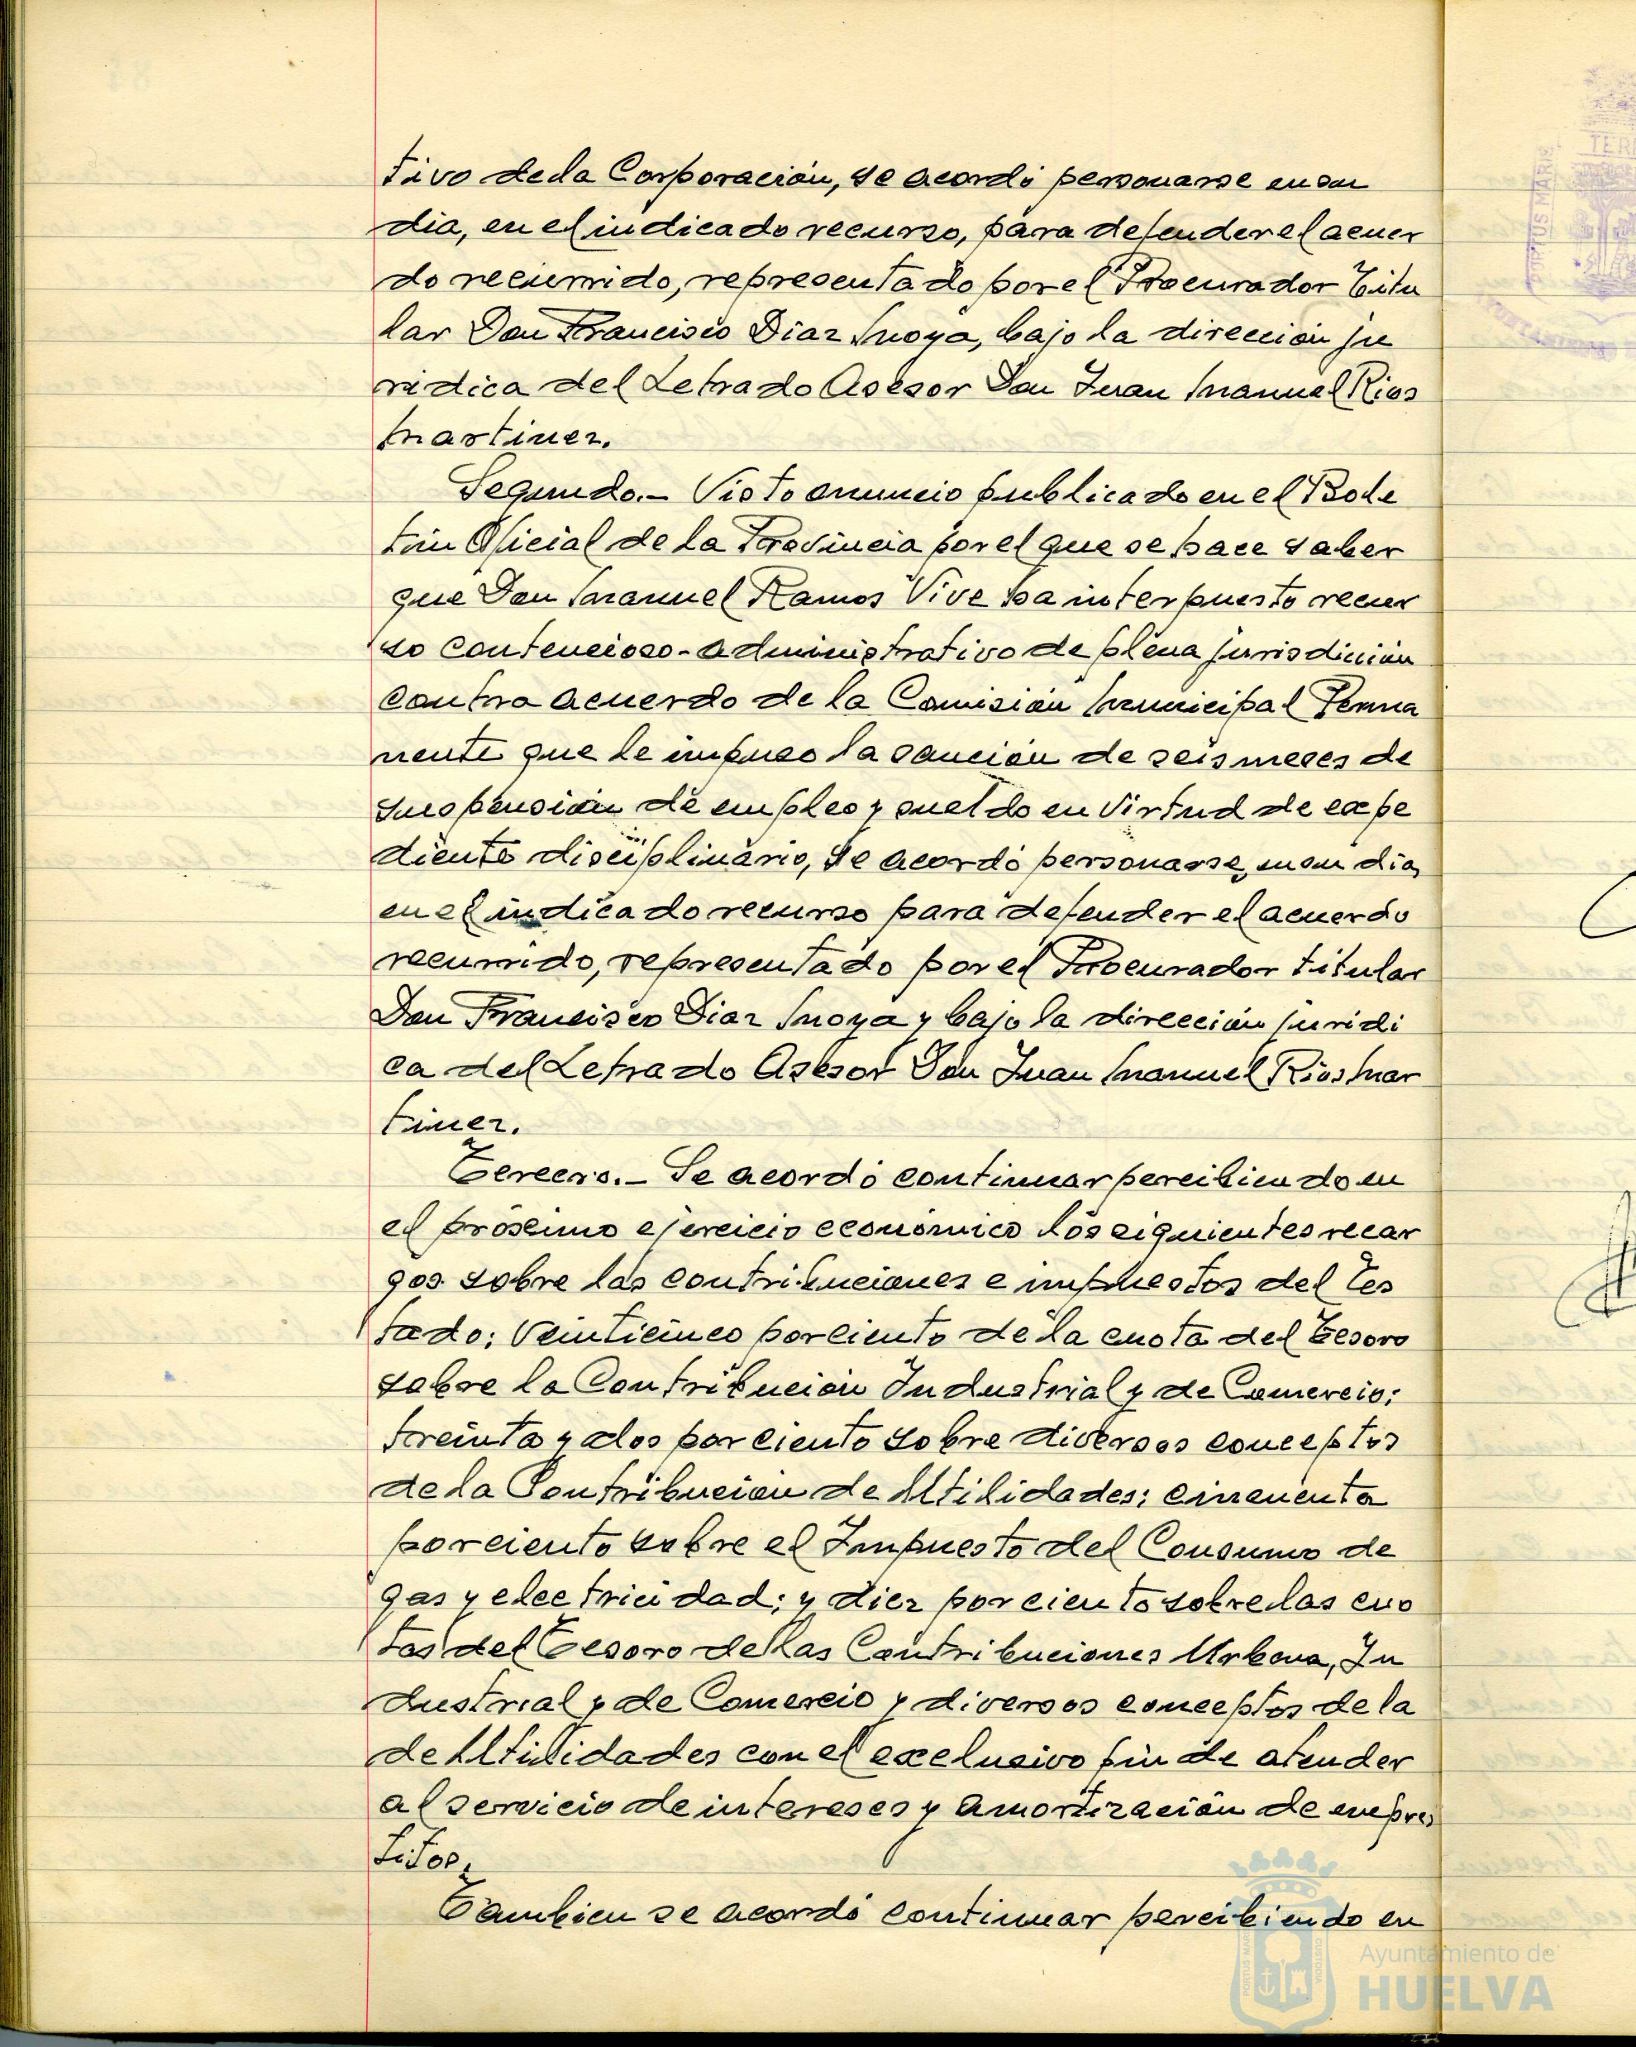 tivo de la Corporación, se acordó personarse en su
dia, en el indicado recurso, para defender el acuer
do recurrido, representado por el Procurador Titu
lar Don Francisco Diaz Moya, bajo la dirección ju
ridica del Letrado Asesor Don Juan Manuel Rios
Martinez.
Segundo.- Visto anuncio publicado en el Bole
tin Oficial de la Provincia por el que se hace saber
que Don Manuel Ramos Vive ha interpuesto recur
so contencioso-administrativo de plena jurisdición
contra acuerdo de la Comisión Municipal Perma
nente que le impuso la sanción de seis meses de
suspensión de empleo y sueldo en virtud de expe
diente disciplinario, se acordó personarse, en su dia,
en el indicado recurso para defender el acuerdo
recurrido, representado por el Procurador titular
Don Francisco Diaz Moya y bajo la dirección juridi
ca del Letrado Asesor Don Juan Manuel Rios Mar
tinez.
Tercero.- Se acordó continuar percibiendo en
el próximo ejercicio económico los siguientes recar
gos sobre las contribuciones e impuestos del Es
tado: Veinticinco por ciento de la cuota del Tesoro
sobre la Contribución Industrial y de Comercio;
treinta y dos por ciento sobre diversos conceptos
de la Contribución de Utilidades; cincuenta
por ciento sobre el Impuesto del Consumo de
gas y electricidad; y diez por ciento sobre las cuo
tas del Tesoro de las Contribuciones Urbana, In
dustrial y de Comercio y diversos conceptos de la
de Utilidades con el exclusivo fin de atender
al servicio de intereses y amortización de empres
titos.
Tambien se acordó continuar percibiendo en
Ayuntamiento de
HUELVA